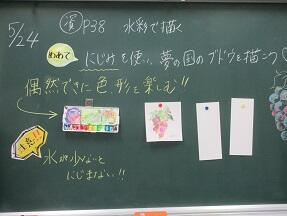 5/24
P38 水彩で描く
めあて にじみを使い、夢の国のブドウを描こう
偶然できた色形を楽しむ!!
注意!!
水が少ないと
にじまない!!